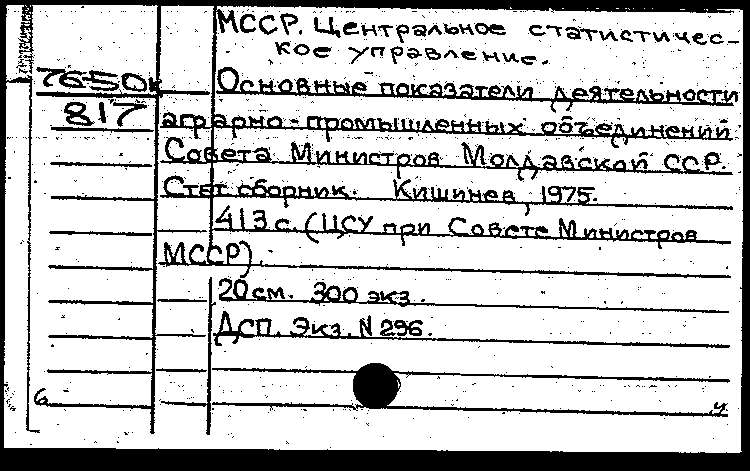 МССР. Центральное статистичес-
кое управление.
76-50к
817
Основные показатели деятельности
аграрно-промышленных объединений
Совета Министров Молдавской ССР.
Стат. сборник. Кишинев, 1975.
413 с. (ЦСУ при Совете Министров
МССР).
20 см. 300 экз.
ДСП. Экз. N 296.
б
у